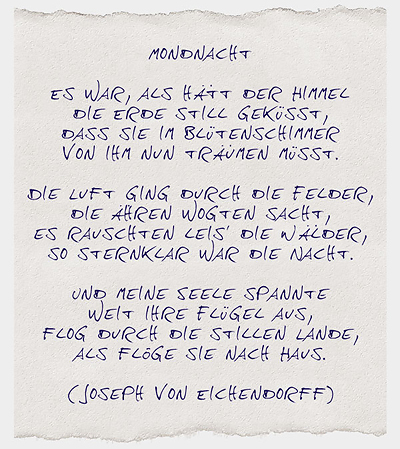 MONDNACHT
ES WAR, ALS HÄTT DER HIMMEL
DIE ERDE STILL GEKÜSST,
DASS SIE IM BLÜTENSCHIMMER
VON IHM NUN TRÄUMEN MÜSST.
DIE LUFT GING DURCH DIE FELDER,
DIE ÄHREN WOGTEN SACHT,
ES RAUSCHTEN LEIS' DIE WÄLDER,
SO STERNKLAR WAR DIE NACHT.
UND MEINE SEELE SPANNTE
WEIT IHRE FLÜGEL AUS,
FLOG DURCH DIE STILLEN LANDE,
ALS FLÖGE SIE NACH HAUS.
(JOSEPH VON EICHENDORFF)